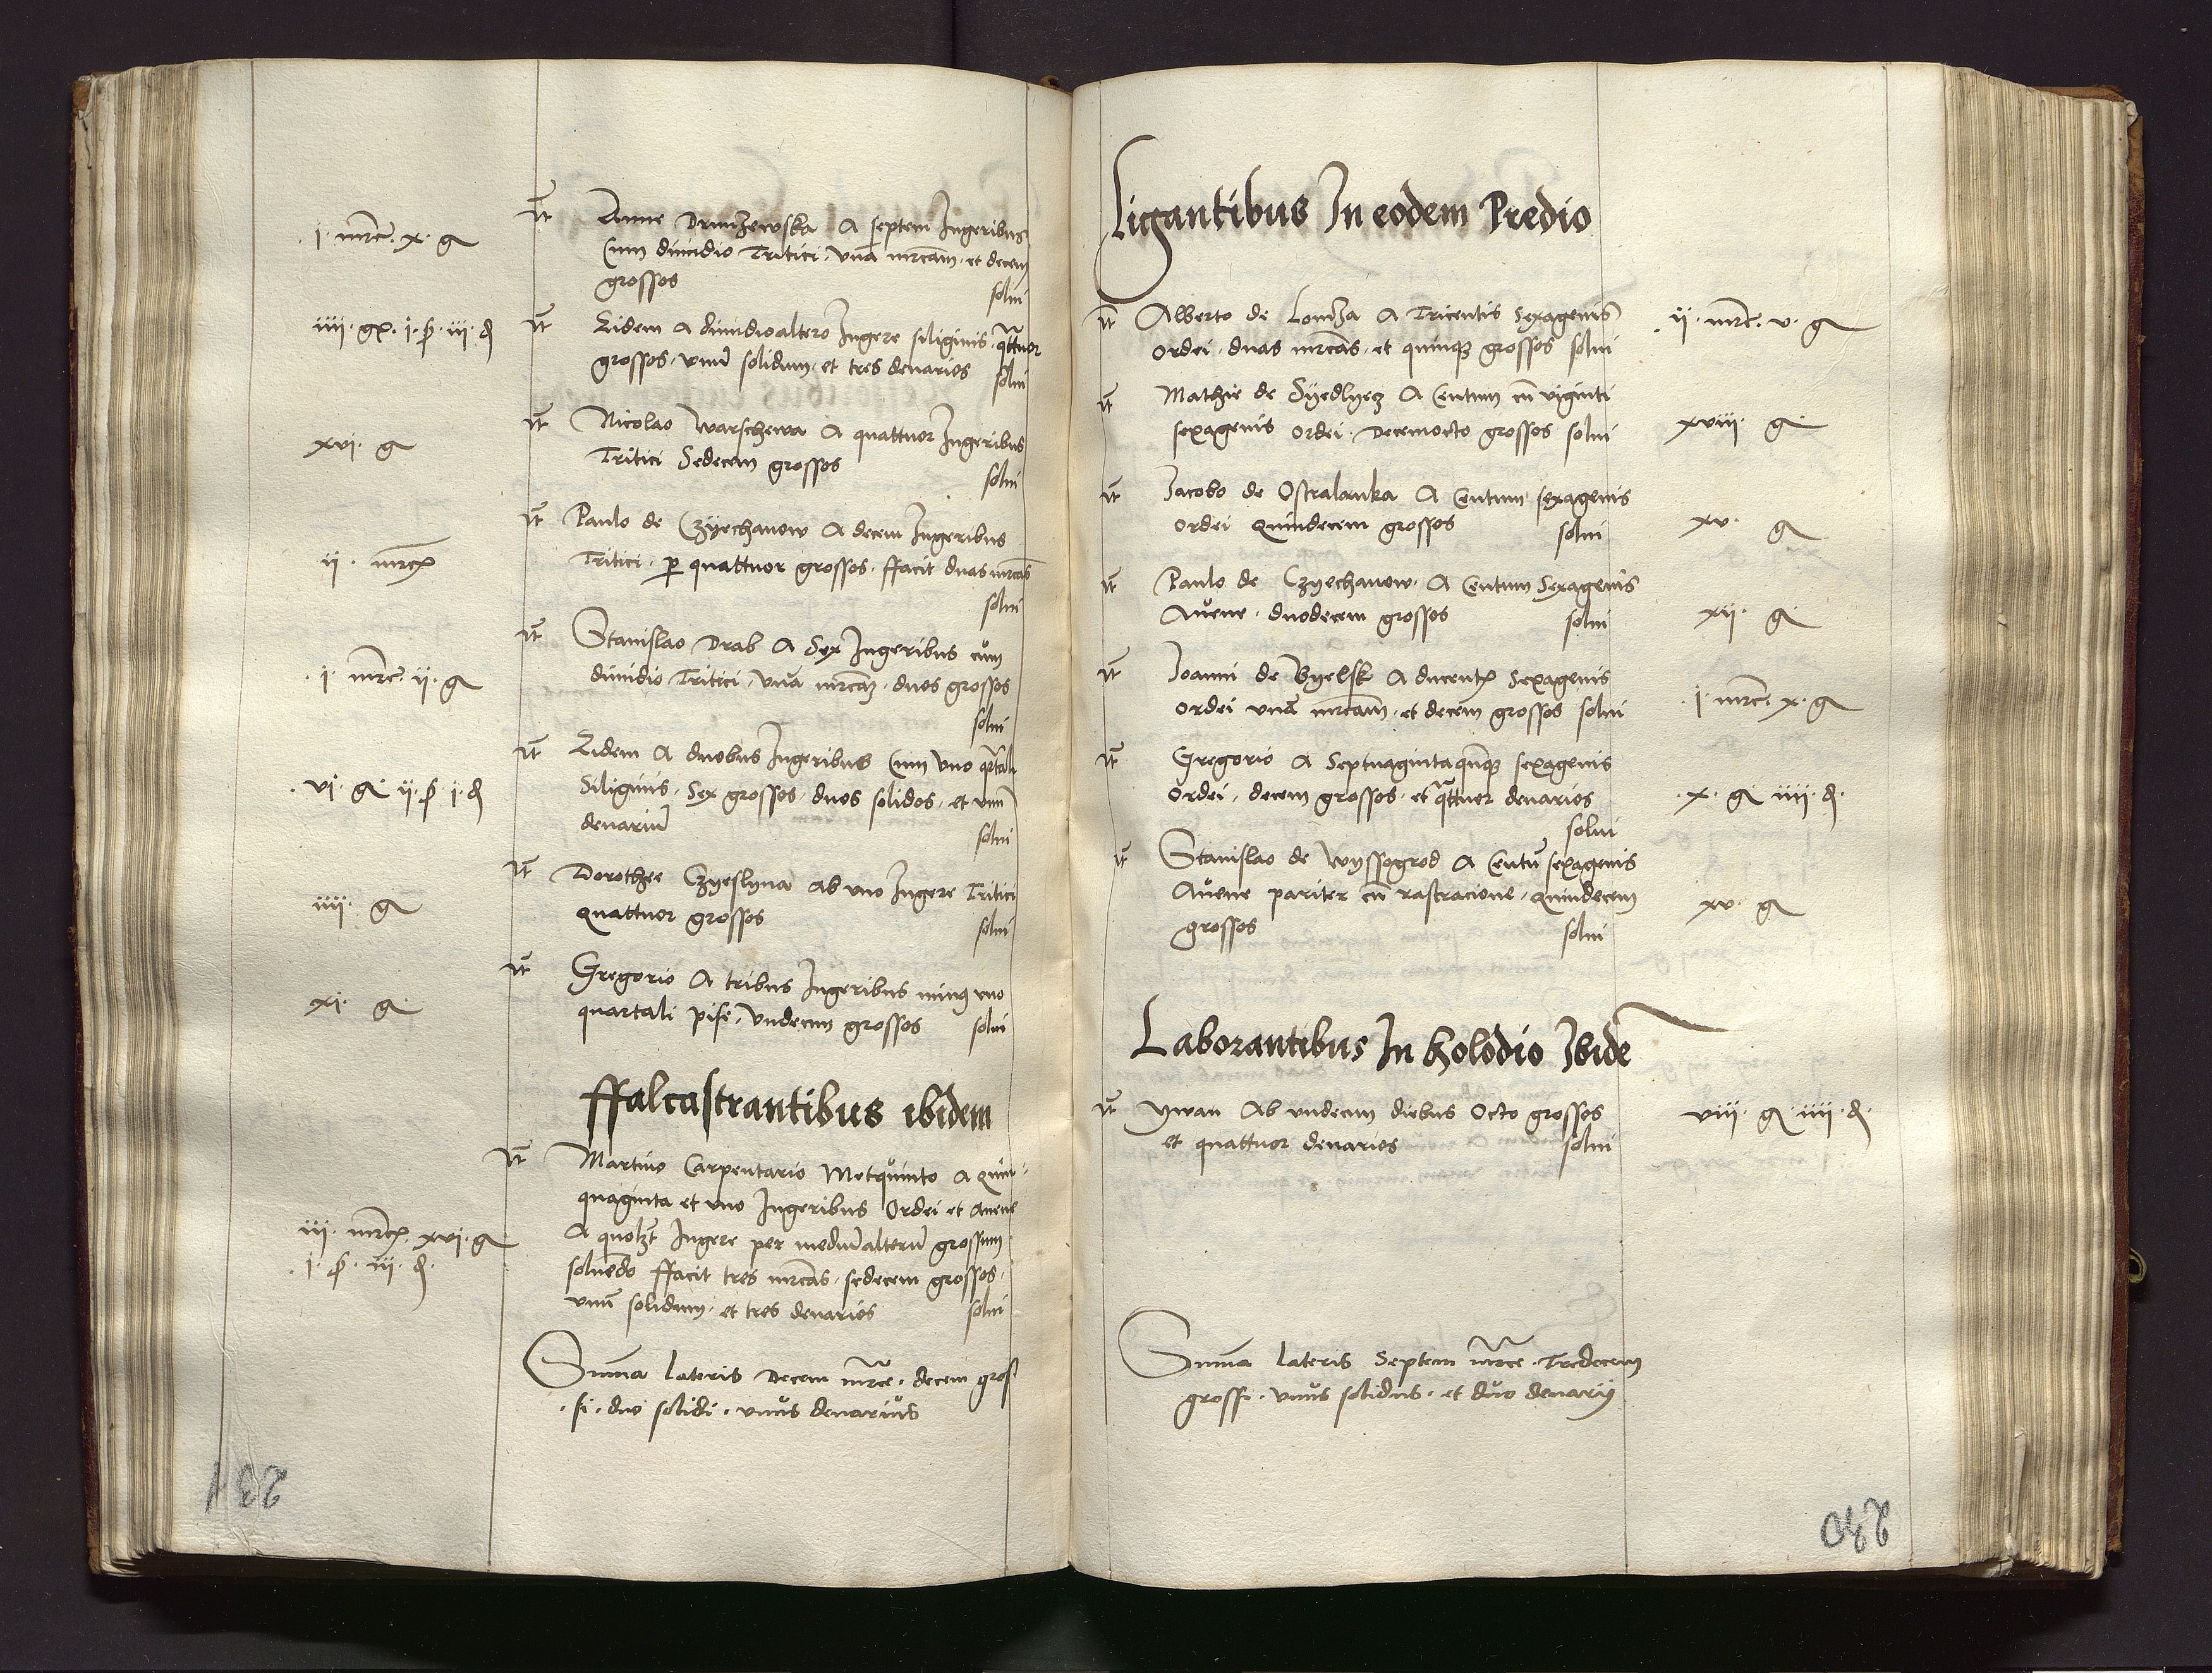 ·i· mrc̄· x· g̃
It̃ Anne Drunzewska A septem Iugeribus
Cum dimidio Tritici · Vnā mrcam̄ · et decem
grossos solui
iiii · gꝝ · i · ꝭ · iii · ₰
It̃ Eidem A dimidioaltero Iugere siliginis · qͣttuor
grossos · vnū solidum · et tres denarios solui
xvi · g̃
It̃ Nicolao Warschewa A quattuor Iugeribus
Tritici Sedecim grossos solui
ii · mrcꝝ
It̃ Paulo de Czÿechanow A decem Iugeribus
Tritici · ꝑ quattuor grossos · ffacit duas mrcas̄
solui
·i· mrc̄· ii· g̃
It̃ Stanislao Drab A Sex Iugeribus cum
dimidio Tritici · Vnā mrcaʒ̄ · duos grossos
solui
· vi · g̃ · ii · ꝭ · i · ₰
It̃ Eidem A duobus Iugeribus Cum Vno qͣrtali
Siliginis · Sex grossos · duos solidos · et vnū
denariū solui
iiii · g̃
It̃ Dorothee Czyeslyna Ab vno Iugere Tritici
quattuor grossos solui
xi · g̃
It̃ Gregorio A tribus Iugeribus minꝰ vno
quartali pise · Vndecim grossos solui
ffalcastrantibus ibidem
iii · mrcꝝ · xvi · g̃
· i · ꝭ · iii · ₰ ·
It̃ Martino Carpentario Metquinto A quin-
quaginta et vno Iugeribus Ordei et Auene
A quolʒt Iugere per mediūalterū grossum
soluēdo ffacit tres mrcas̄ · sedecem grossos ·
vnū solidum · et tres denarios solui
Sum̄a lateris Decem mͣrce · decem gros
· si · duo solidi · vnus denarius
239
Ligantibus In eodem Predio
It̃ Alberto de Lomza A Tricentis Sexagenis
Ordei · duas mrcas̄ · et quinqʒ grossos solui
· ii · mrc̄· v · g̃
It̃ Mathie de Sÿedlyecz A Centum cū viginti
sexagenis Ordei · Decemocto grossos solui
xviii · g̃
It̃ Jacobo de Ostralanka A Centum sexagenis
Ordei quindecem grossos solui
xv · g̃
It̃ Paulo de Czyechanow · A Centum Sexagenis
Auene · duodecem grossos solui
xii · g̃
It̃ Joanni de Byelsk A ducentꝝ Sexagenis
Ordei vnā mrcam̄ · et decem grossos solui
· i · mrc̄· x · g̃
It̃ Gregorio A Septuagintaqͥnqʒ sexagenis
Ordei · decem grossos · et qͣttuor denarios
solui
· x · g̃ iiii · ₰ ·
It̃ Stanislao de Wyssogrod A Centū sexagenis
Auene pariter cū rastracione · quindecem
grossos solui
xv · g̃
Laborantibus In holodio Ibidē
It̃ ywan Ab vndecim diebus Octo grossos
et quattuor denarios solui
viii · g̃ · iiii · ₰ ·
Sum̄a lateris Septem mͣrce · Tredecem
grossi · vnus solidus · et duo denarij
240